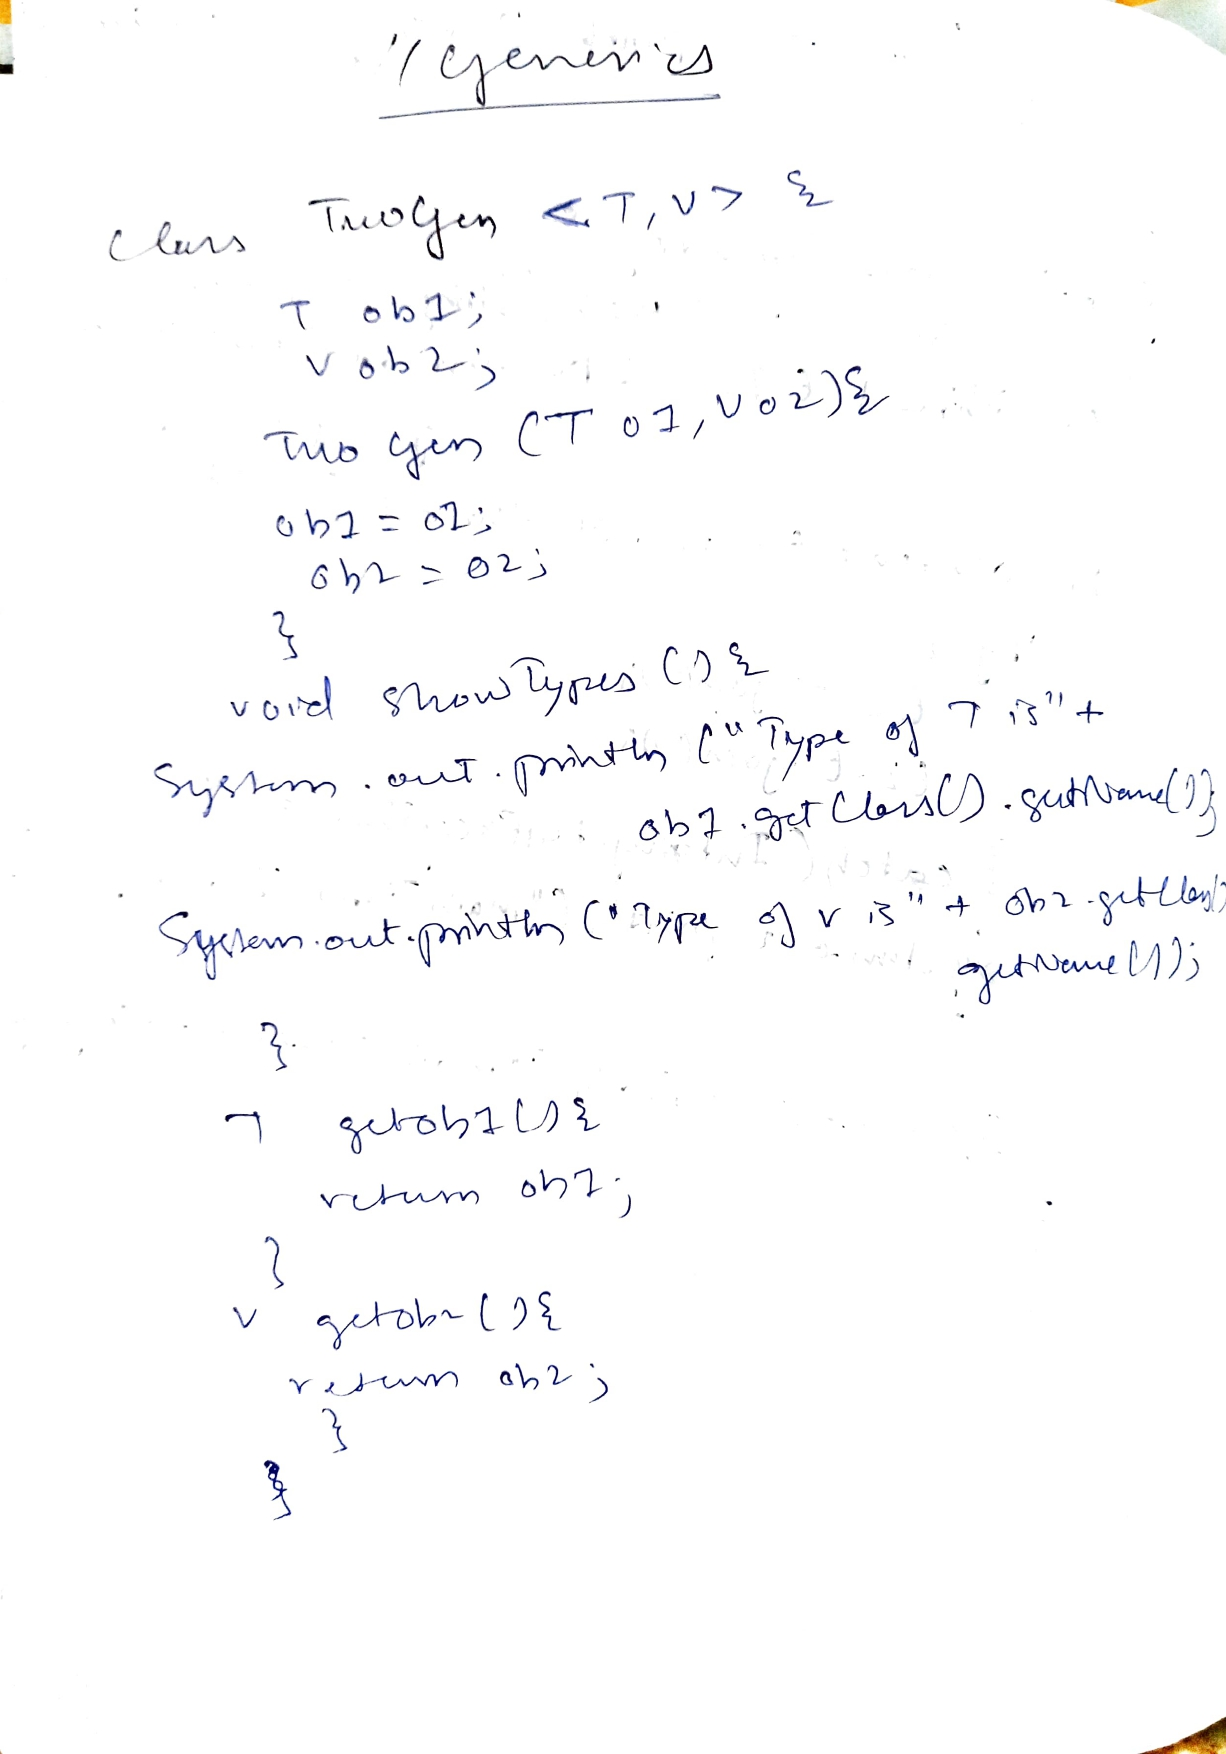 Generics
class TwoGen <T, V> {
T ob1;
V ob2;
Two Gen (T o1, V o2){
ob1 = o1;
ob2 = o2;
}
void showTypes () {
System.out.println ("Type of T is" +
ob1.getClass().getName());
System.out.println ("Type of V is" + ob2.getClass()
getName());
}
T getob1() {
return ob1;
}
V getob2 () {
return ob2;
}
}